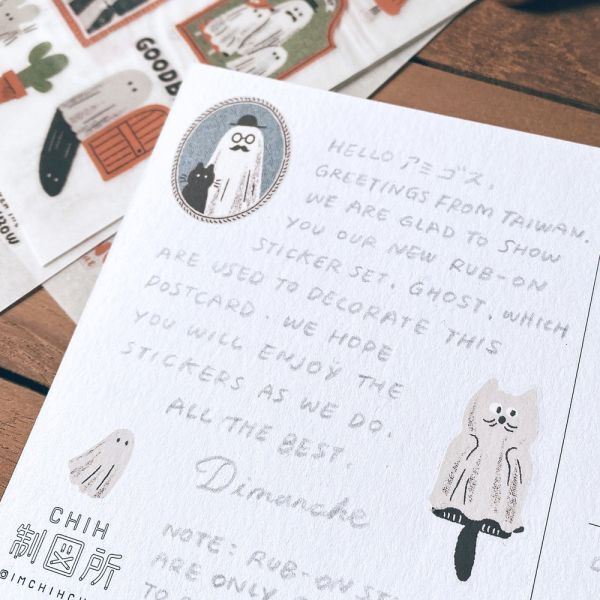 GOODB
HELLO アミゴス,
GREETINGS FROM TAIWAN.
WE ARE GLAD TO SHOW
YOU OUR NEW RUB-ON
STICKER SET, GHOST, WHICH
ARE USED TO DECORATE THIS
POSTCARD. WE HOPE
YOU WILL ENJOY THE
STICKERS AS WE DO.
ALL THE BEST.
Dimanche
NOTE: RUB-ON
ARE ONLY
CHIH
制図所
@IMCHIHCH